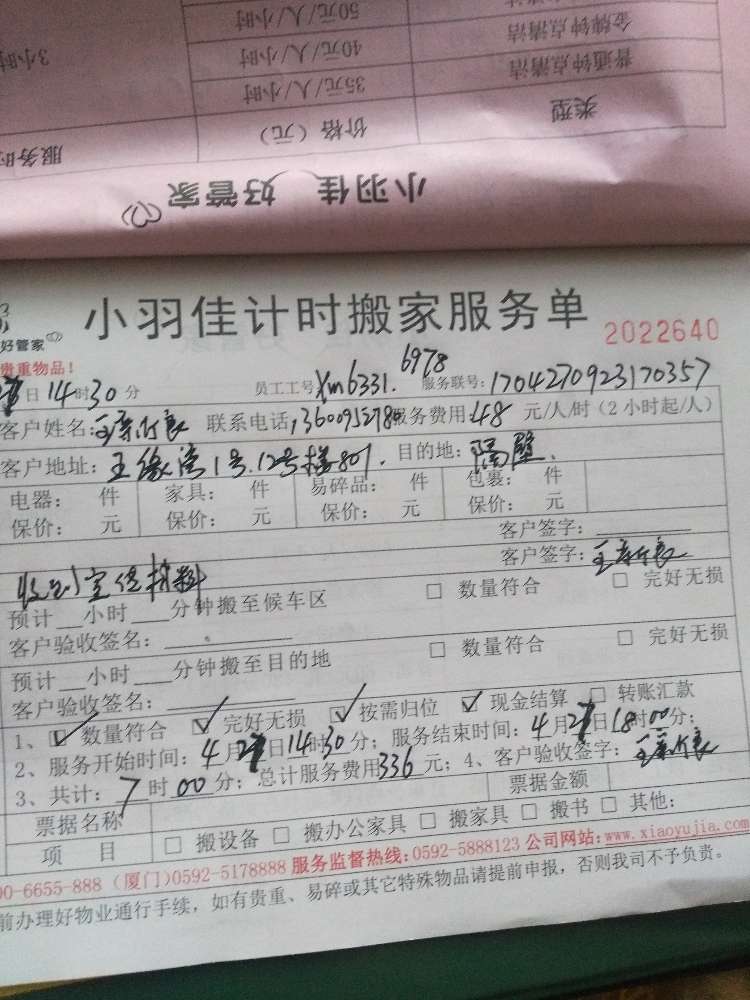 50元/人/小时
金牌钟点清洁 40元/人/小时 3小时
普通钟点清洁 35元/人/小时
类型 价格（元） 服务时
小羽佳 好管家
小羽佳计时搬家服务单 2022640
好管家
贵重物品！
日14时30分 员工工号:Xm6331. 6978 服务联号:1704270923170357
客户姓名: 联系电话: 服务费用:48 元/人/时（2小时起/人）
客户地址: 1号.12号楼801. 目的地: 隔壁.
电器: 件 家具: 件 易碎品: 件 包裹: 件
保价: 元 保价: 元 保价: 元 保价: 元
客户签字:
客户签字:
收到宣传材料
预计__小时___分钟搬至候车区 □ 数量符合 □ 完好无损
客户验收签名:
预计__小时___分钟搬至目的地 □ 数量符合 □ 完好无损
客户验收签名:
1、☑ 数量符合 ☑ 完好无损 ☑ 按需归位 ☑ 现金结算 □ 转账汇款
2、服务开始时间: 4月27日14时30分; 服务结束时间: 4月27日18时00分;
3、共计: 7时00分; 总计服务费用336元; 4、客户验收签字:
票据名称 票据金额
项 目 □ 搬设备 □ 搬办公家具 □ 搬家具 □ 搬书 □ 其他:
00-6655-888（厦门）0592-5178888 服务监督热线:0592-5888123 公司网站:www.xiaoyujia.com
前办理好物业通行手续，如有贵重、易碎或其它特殊物品请提前申报，否则我司不予负责。